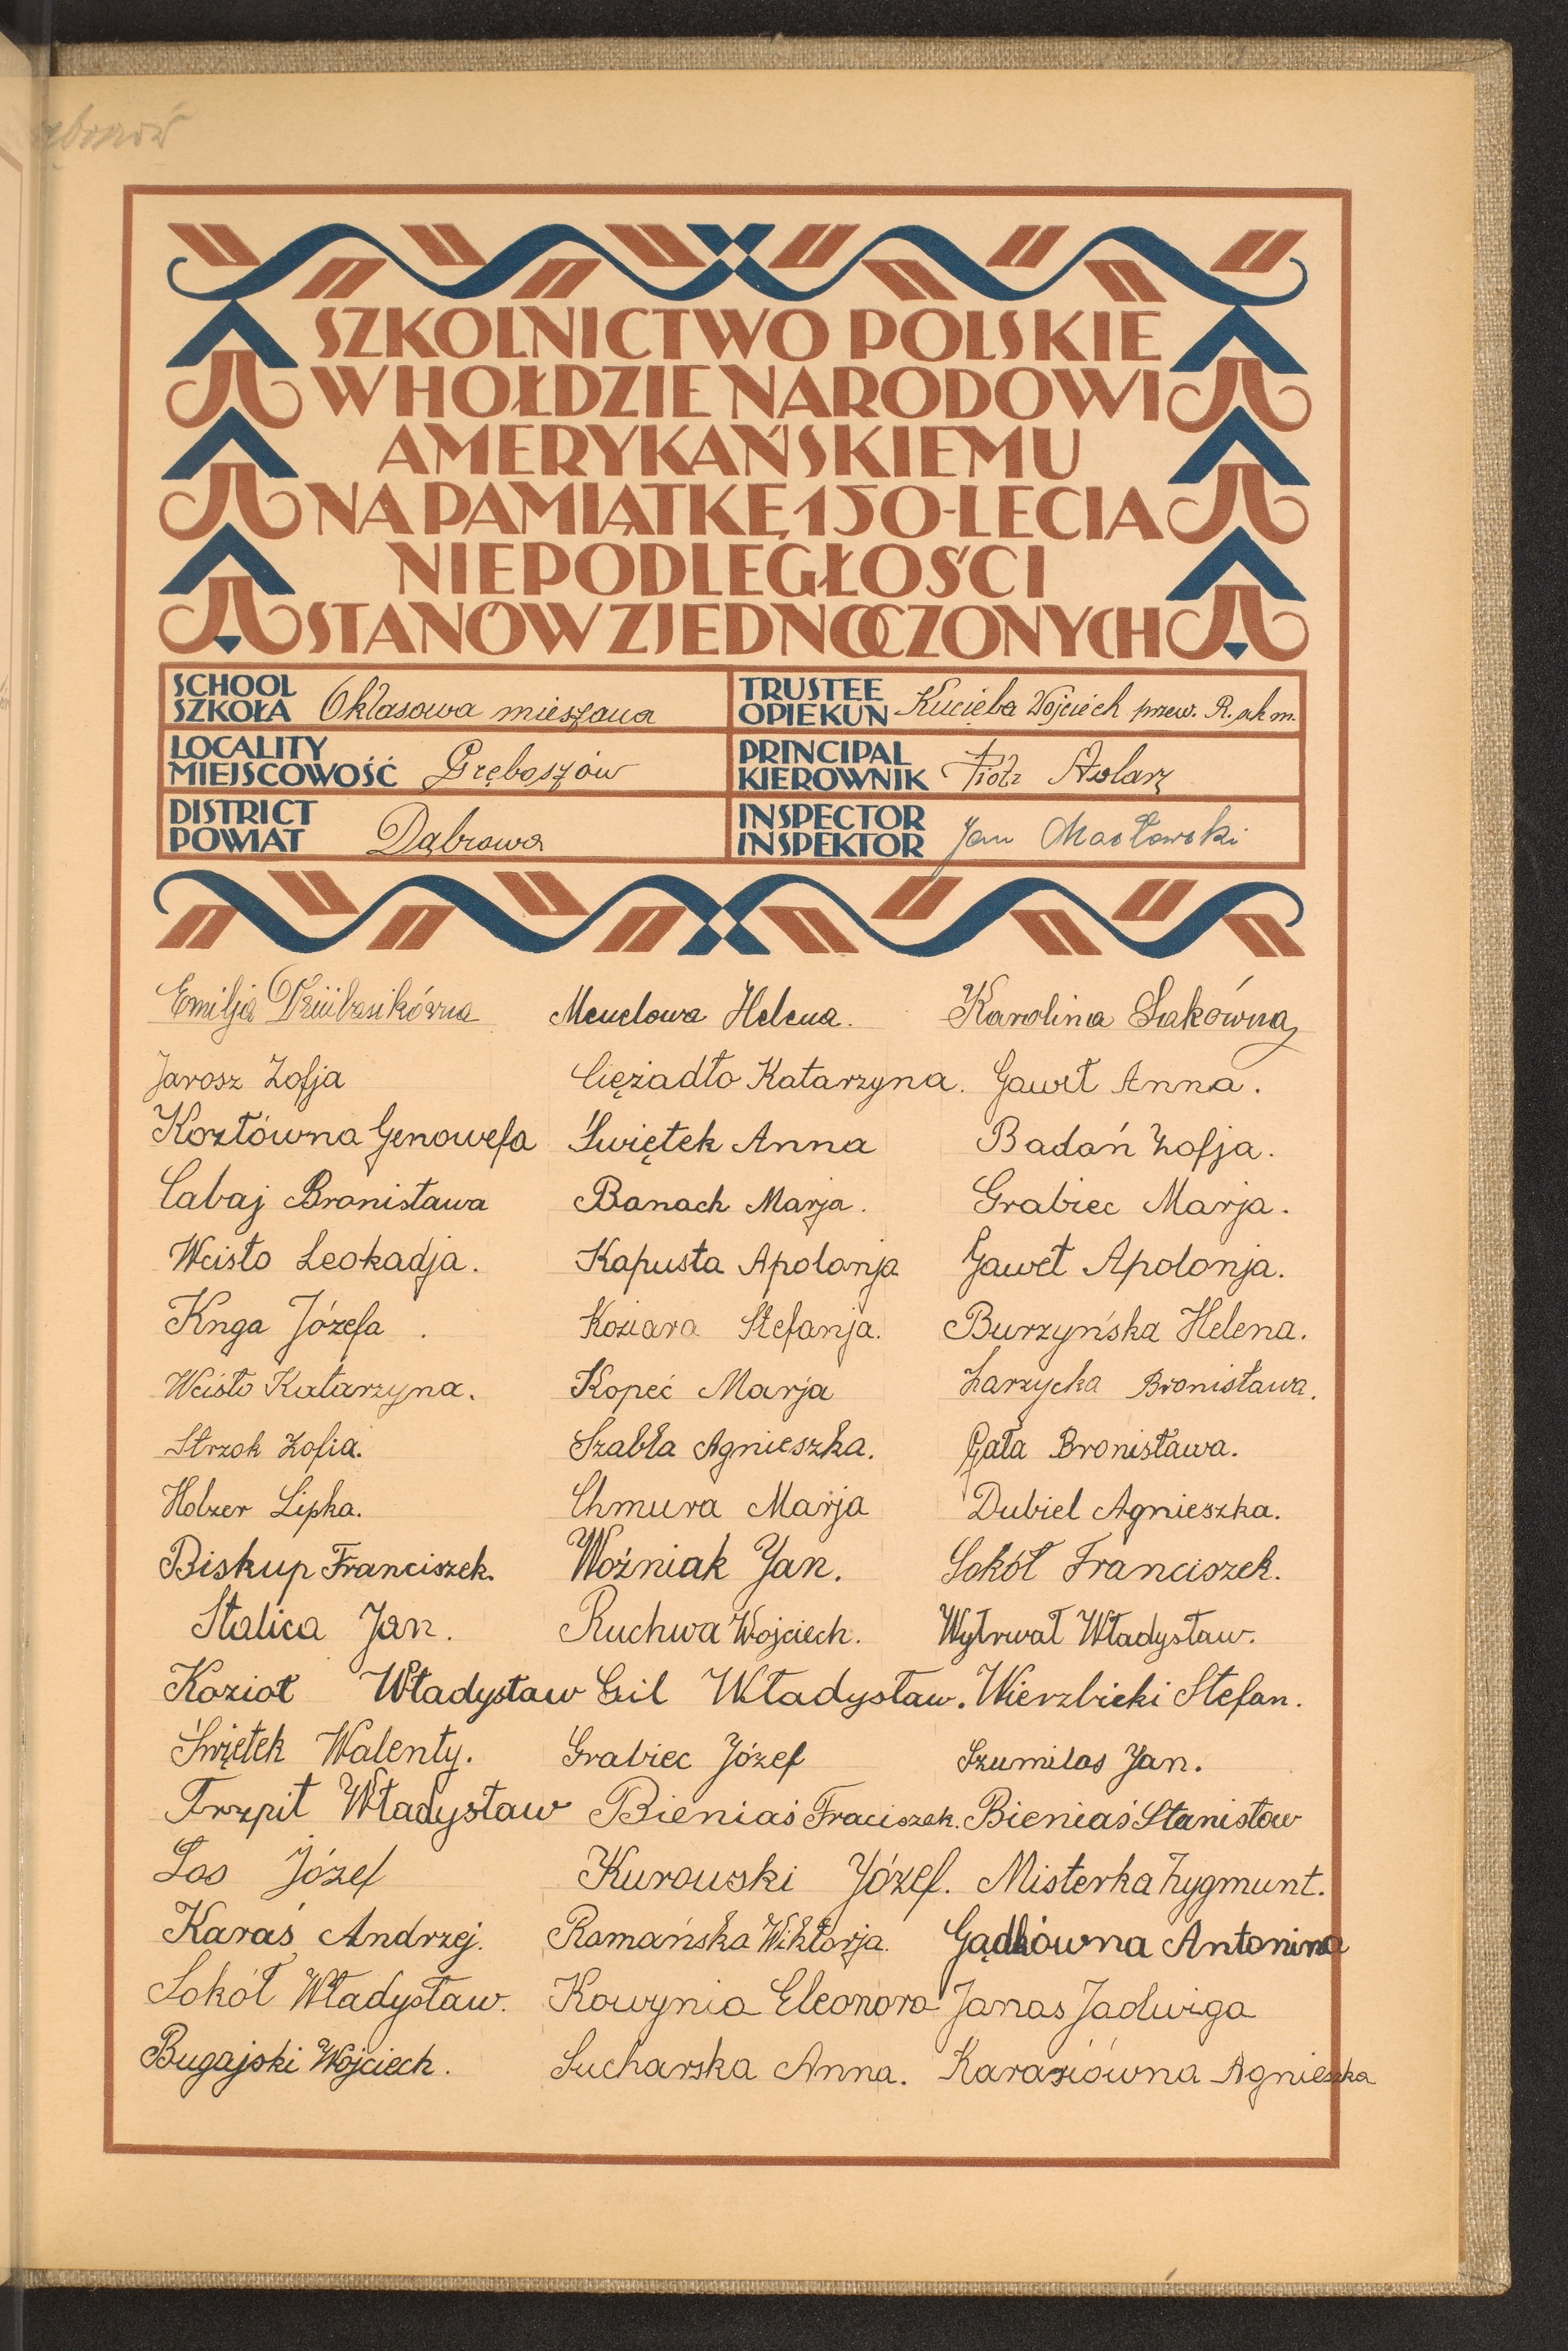 SZKOLNICTWO POLSKIE
W HOŁDZIE NARODOWI
AMERYKAŃSKIEMU
NA PAMIĄTKĘ 150-LECIA
NIEPODLEGŁOŚCI
STANÓW ZJEDNOCZONYCH
SCHOOL
SZKOŁA 6klasowa mieszana
TRUSTEE
OPIEKUN Kucięba Wojciech przew. R.
LOCALITY
MIEJSCOWOŚĆ Gręboszów
PRINCIPAL
KIEROWNIK Piotr Stolarz
DISTRICT
POWIAT Dąbrowa
INSPECTOR
INSPEKTOR Jan Masłowski
Emilja Menelowa Helena. Karolina Sakówna
Jarosz Zofja Ciężadło Katarzyna. Gaweł Anna.
Kozłówna Genowefa Świętek Anna Badoń Zofja.
Cabaj Bronisława Banach Marja. Grabiec Marja.
Wcisło Leokadja. Kapusta Apolonja Gaweł Apolonja.
Knga Józefa. Koziara Stefanja. Burzyńska Helena.
Wcisło Katarzyna. Kopeć Marja Zarzycka Bronisława.
Strzok Zofia. Szabla Agnieszka. Gała Bronisława.
Holzer Lipka. Chmura Marja Dubiel Agnieszka.
Biskup Franciszek. Woźniak Jan. Sokół Franciszek.
Stalica Jan. Ruchwa Wojciech. Wytrwał Władysław.
Kozioł Władysław Gil Władysław. Wierzbicki Stefan.
Świętek Walenty. Grabiec Józef Szumilas Jan.
Trzpit Władysław Bieniaś Fraciszek. Bieniaś Stanisław
Los Józef Kurowski Józef. Misterka Zygmunt.
Karaś Andrzej. Romańska Wiktorja. Gądkówna Antonina
Sokół Władysław. Kowynia Eleonora Janas Jadwiga
Bugajski Wojciech. Sucharska Anna. Karasiówna Agnieszka